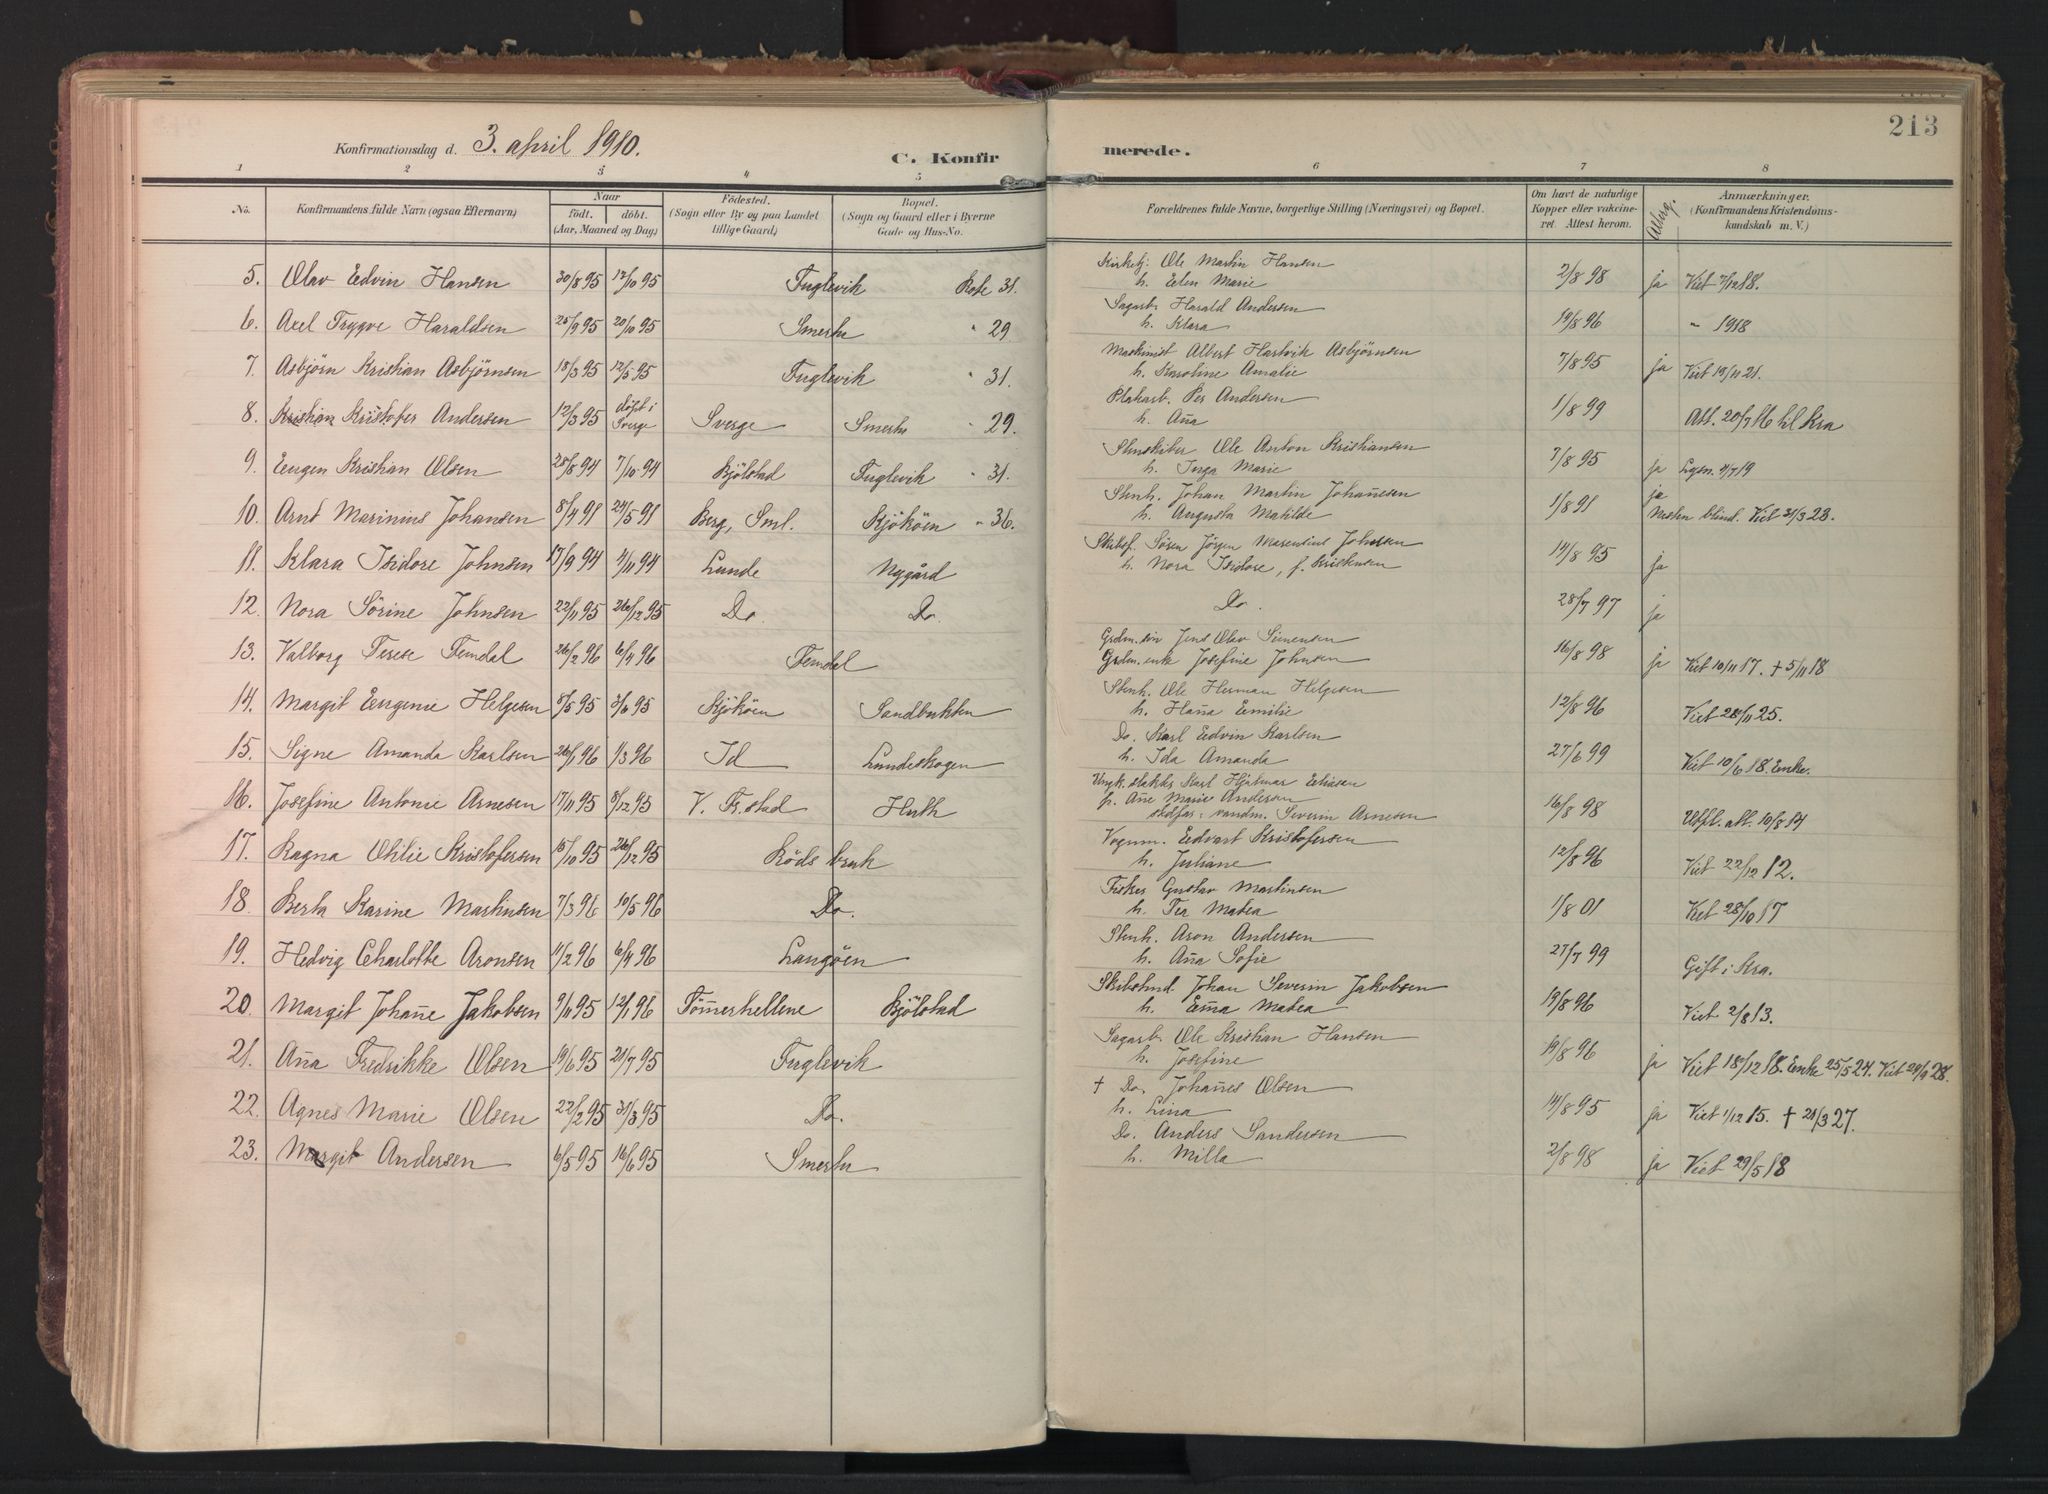 213
Konfirmationsdag d. 3. april 1910.
C. Konfirmerede.
1 2 3 4 5 6 7 8
No. Konfirmandens fulde Navn (ogsaa Efternavn) Naar født. døbt. (Aar, Maaned og Dag) Födested. (Sogn eller By og paa Landet tillige Gaard) Bopæl. (Sogn og Gaard eller i Byerne Gade og Hus-No. Forældrenes fulde Navne, borgerlige Stilling (Næringsvei) og Bopæl. Om havt de naturlige Kopper eller vakcineret. Attest herom. Anmærkninger. (Konfirmandens Kristendomskundskab m. V.)
5. Olav Edvin Hansen 30/8 95 13/10 95 Fuglevik Rofe 31. Kirketj. Ole Martin Hansen
h. Elen Marie 2/8 98 ja Viet 7/12 18.
6. Axel Trygve Haraldsen 25/9 95 20/10 95 Smertu " 29. Sagarb. Harald Andersen
h. Klara 19/8 96 " 1918
7. Asbjörn Kristian Asbjörnsen 18/3 95 12/5 95 Fuglevik " 31. Maskinist Albert Hartvik Asbjørnsen
h. Karoline Amalie 7/8 95 ja Viet 19/11 21.
8. Kristian Kristofer Andersen 12/3 95 döpt i Sverge Sverge Smertu " 29. Plankarb. Per Andersen
h. Ana 1/8 99 Att. 20/7 16 til Kra
9. Eugen Kristian Olsen 28/8 94 7/10 94 Kjölstad Fuglevik " 31. Stenskiber Ole Anton Kristiansen
h. Inga Marie 7/8 95 ja Lysn. 4/7 19
10. Arnt Marinius Johansen 8/4 91 24/5 91 Berg, Sml. Kjököen " 36. Stenh. Johan Martin Johanesen
h. Augusta Matilde 1/8 91 ja Næsten blind. Viet 31/3 23.
11. Klara Isidore Johnsen 17/9 94 4/11 94 Lunde Nygård Skibsf. Sören Jörgen Marentius Johnsen
h. Nora Isidore, f. Kristensen 14/8 95 ja
12. Nora Sörine Johnsen 22/11 95 26/12 95 Do. Do. Do. 28/7 97 ja
13. Valborg Terese Femdal 26/2 96 6/4 96 Femdal Grdm. sön Jens Olav Simensen
Grdm. enke Josefine Johnsen 16/8 98 ja Viet 10/11 17. + 5/11 18
14. Margit Eugenie Helgesen 8/5 95 3/6 95 Kjököen Sandbukten Stenh. Ole Herman Helgesen
h. Hana Emilie 12/8 96 Viet 28/11 25.
15. Signe Amanda Karlsen 26/1 96 1/3 96 Id Lundeskogen Do. Karl Edvin Karlsen
h. Ida Amanda 27/6 99 Viet 10/6 18. Enke.
16. Josefine Antonie Arnesen 17/11 95 8/12 95 V. Fr.stad Huth Ungk. Karl Hjalmar Eliasen
p. Ane Marie Andersen
stedfar: vandm. Severin Arnesen 16/8 98 Utfl. att. 10/8 14
17. Ragna Otilie Kristofersen 15/10 95 26/12 95 Röds bruk Vognm. Edvart Kristofersen
h. Juliane 12/8 96 Viet 22/12 12.
18. Berta Karine Martinsen 7/3 96 10/5 96 Do. Fisker Gustav Martinsen
h. Tea Matea 1/8 01 Viet 28/10 17
19. Hedvig Charlotte Aronsen 11/2 96 6/4 96 Langöen Stenh. Aron Andersen
h. Ana Sofie 27/7 99 Gift i Kra.
20. Margit Johane Jakobsen 9/11 95 12/1 96 Tömerhellene Kjölstad Skibstmd. Johan Severin Jakobsen
h. Ema Matea 19/8 96 Viet 2/8 13.
21. Ana Fredrikke Olsen 19/6 95 21/7 95 Fuglevik Sagarb. Ole Kristian Hansen
h. Josefine 19/8 96 ja Viet 18/12 18. Enke 25/5 24. Viet 29/9 28.
22. Agnes Marie Olsen 22/2 95 31/3 95 Do. † Do. Johanes Olsen
h. Lina 14/8 95 ja Viet 1/12 15. + 21/3 27.
23. Margit Andersen 6/5 95 16/6 95 Smertu Do. Anders Sandersen
h. Milla 2/8 98 ja Viet 29/5 18